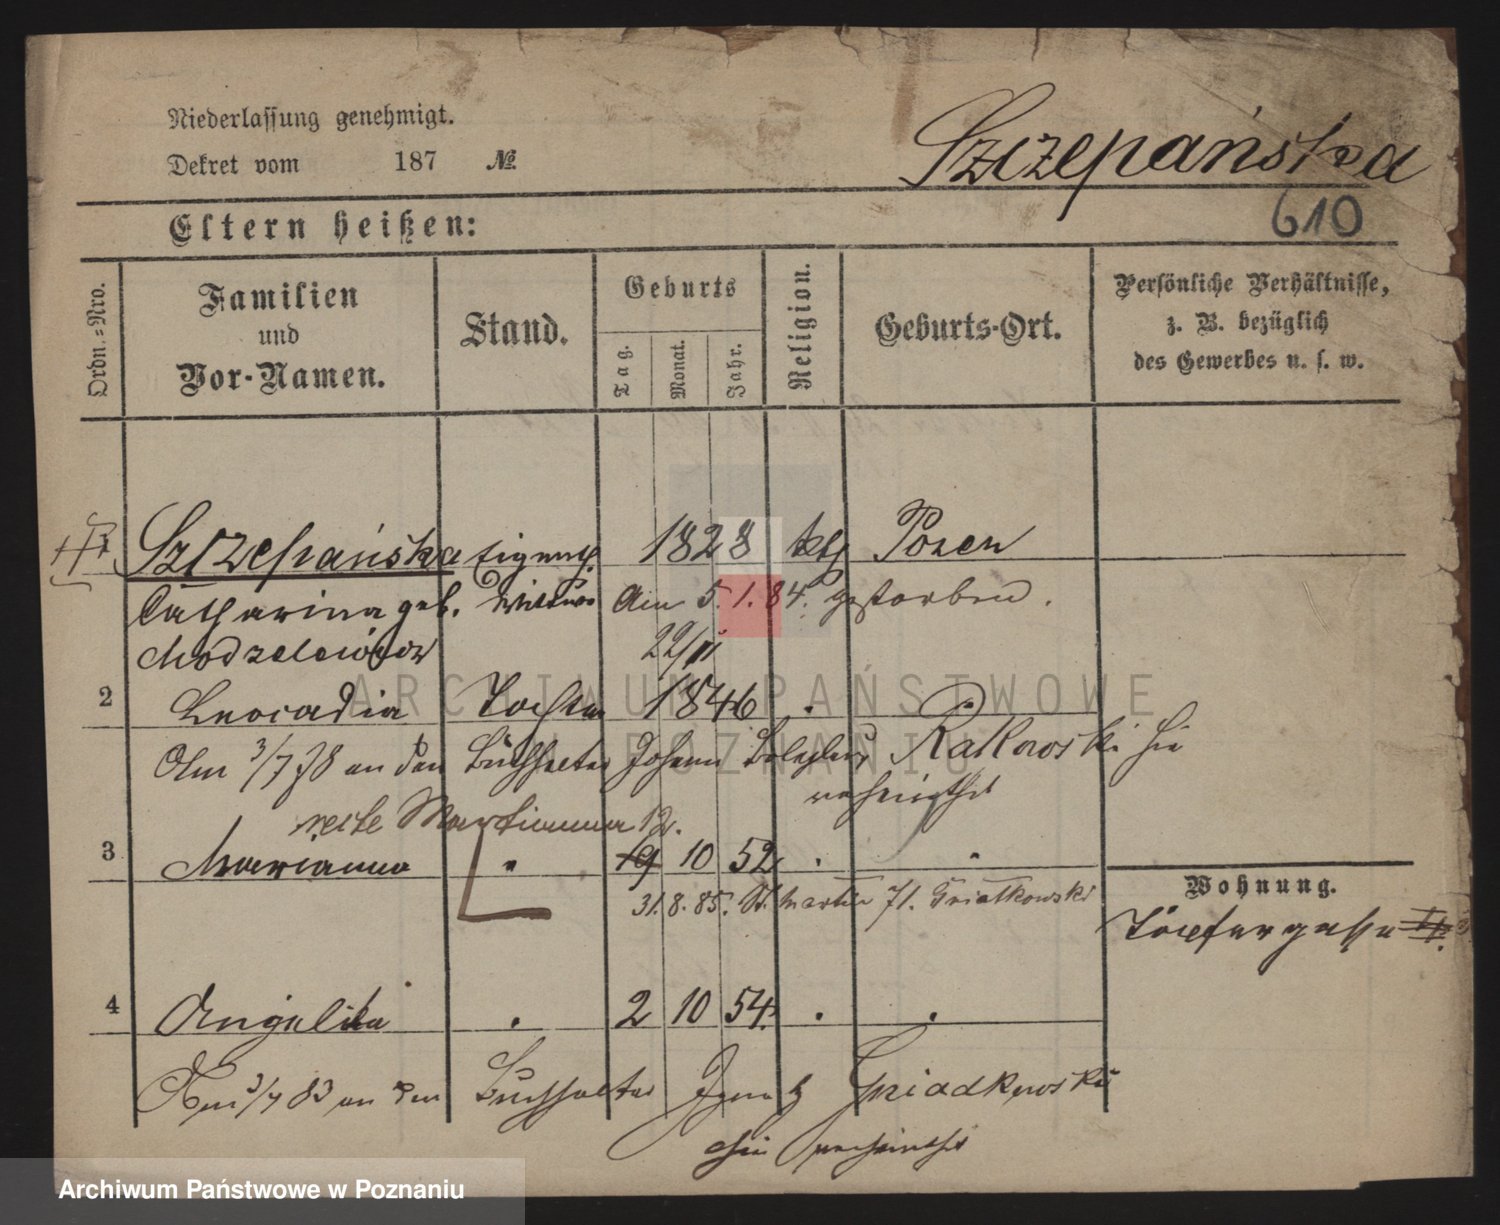 Niederlassung genehmigt.
Dekret vom 187 №
Szczepańska
610
Eltern heißen:
Ordn.-Nro.
Familien und Vor-Namen.
Stand.
Geburts
Tag.
Monat.
Jahr.
Religion.
Geburts-Ort.
Persönliche Verhältnisse,
z. B. bezüglich
des Gewerbes u. s. w.
1 Szczepańska Eigenth. 1828 kth Posen
Catharina geb. Wittwe Am 5.1.84. gestorben.
22/11
2 Leocadia Tochter 1846 .
Am 3/7 78 an den Buchhalter Johann Rakowski hie
verheirathet
recte Martianna 12.
3 Marianna " 19 10 52 . "
31.8.85. St. Martin 71. Gniatkowski
Wohnung.
4 Angelika . 2 10 54. . .
Am 3/7 83 an den Buchhalter Ignatz Gniadkowski
hie verheirathet
ARCHIWUM PAŃSTWOWE
W POZNANIU
Archiwum Państwowe w Poznaniu